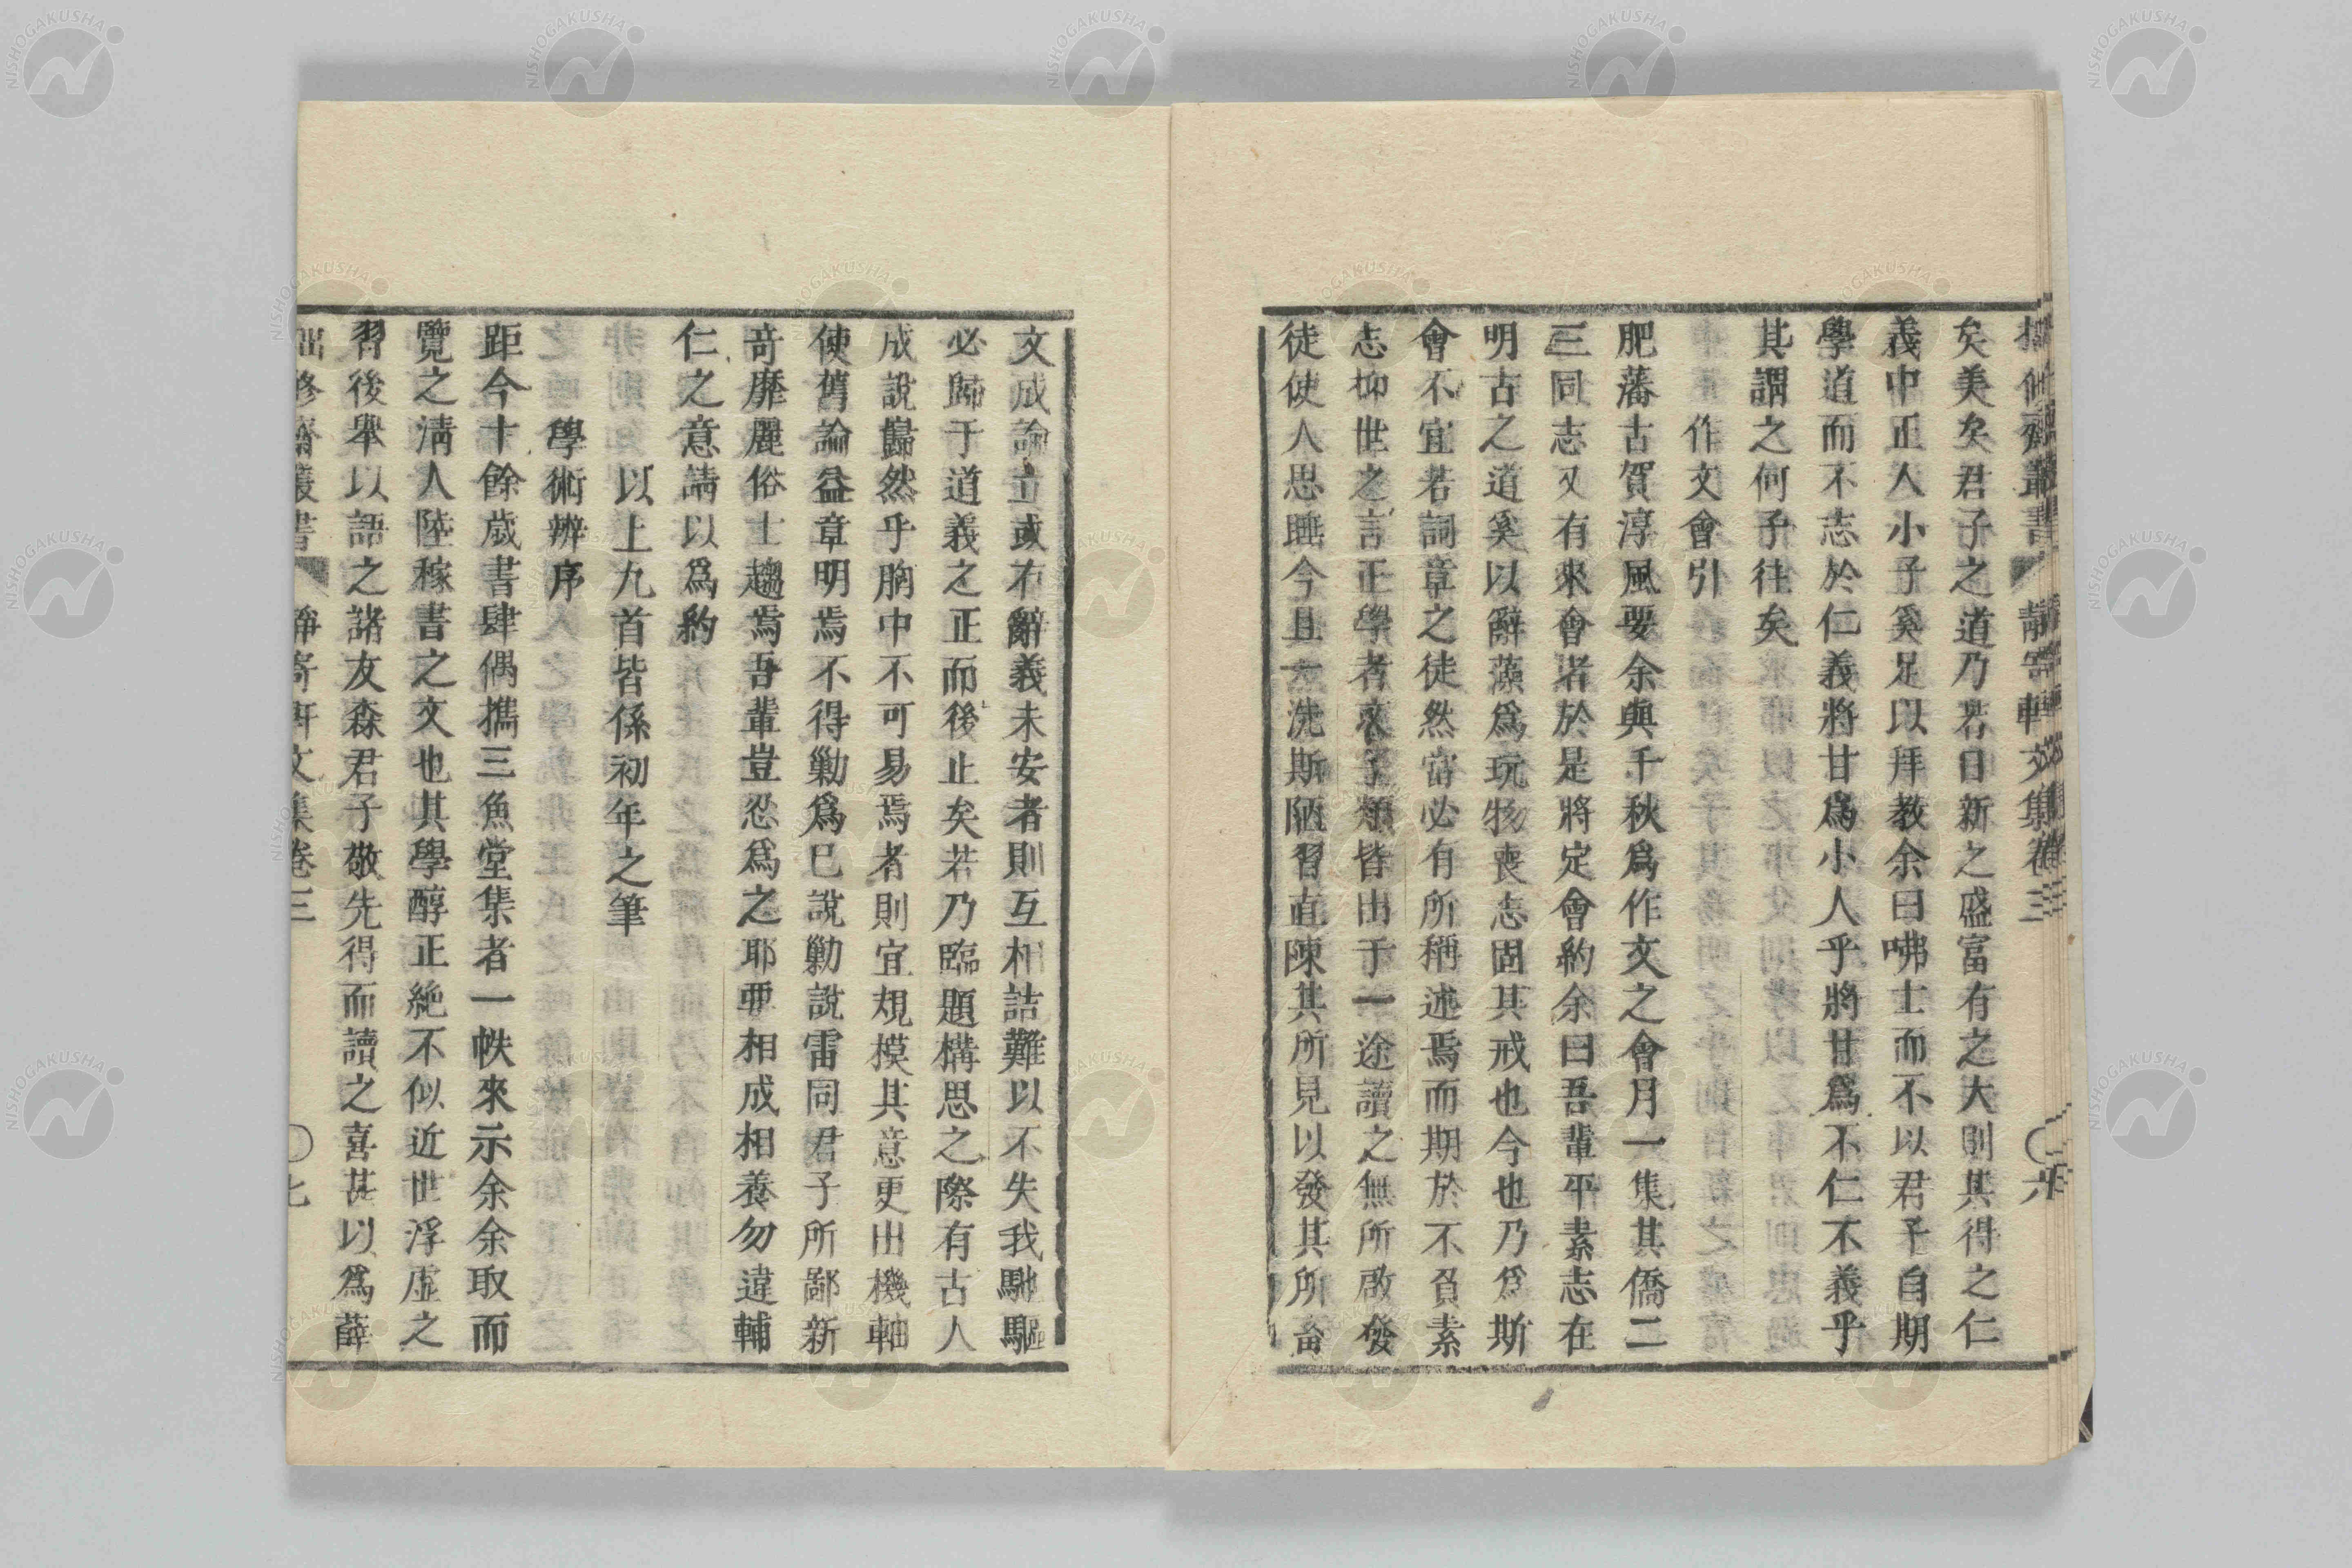 拙修齋叢書 靜寄軒文集卷三 〇六
矣美矣君子之道乃若日新之盛富有之大則其得之仁
義中正人小子奚足以拜教余曰咈士而不以君子自期
學道而不志於仁義將甘爲小人乎將甘爲不仁不義乎
其謂之何子往矣
作文會引
肥藩古賀淳風要余與千秋爲作文之會月一集其僑二
三同志又有來會者於是將定會約余曰吾輩平素志在
明古之道奚以辭藻爲玩物喪志固其戒也今也乃爲斯
會不宜若詞章之徒然當必有所稱述焉而期於不負素
志抑世之言正學者文字類皆出于一途讀之無所啟發
徒使人思睡今且一洗斯陋習直陳其所見以發其所畜
文成論立或有辭義未安者則互相詰難以不失我馳驅
必歸于道義之正而後止矣若乃臨題構思之際有古人
成說巋然乎胸中不可易焉者則宜規模其意更出機軸
使舊論益章明焉不得勦爲已說勦說雷同君子所鄙新
奇靡麗俗士趨焉吾輩豈忍爲之耶要相成相養勿違輔
仁之意請以爲約
以上九首皆係初年之筆
學術辨序
距今十餘歲書肆偶攜三魚堂集者一帙來示余余取而
覽之淸人陸稼書之文也其學醇正絕不似近世浮虛之
習後舉以語之諸友森君子敬先得而讀之喜甚以爲薛
拙修齋叢書 靜寄軒文集卷三 〇七